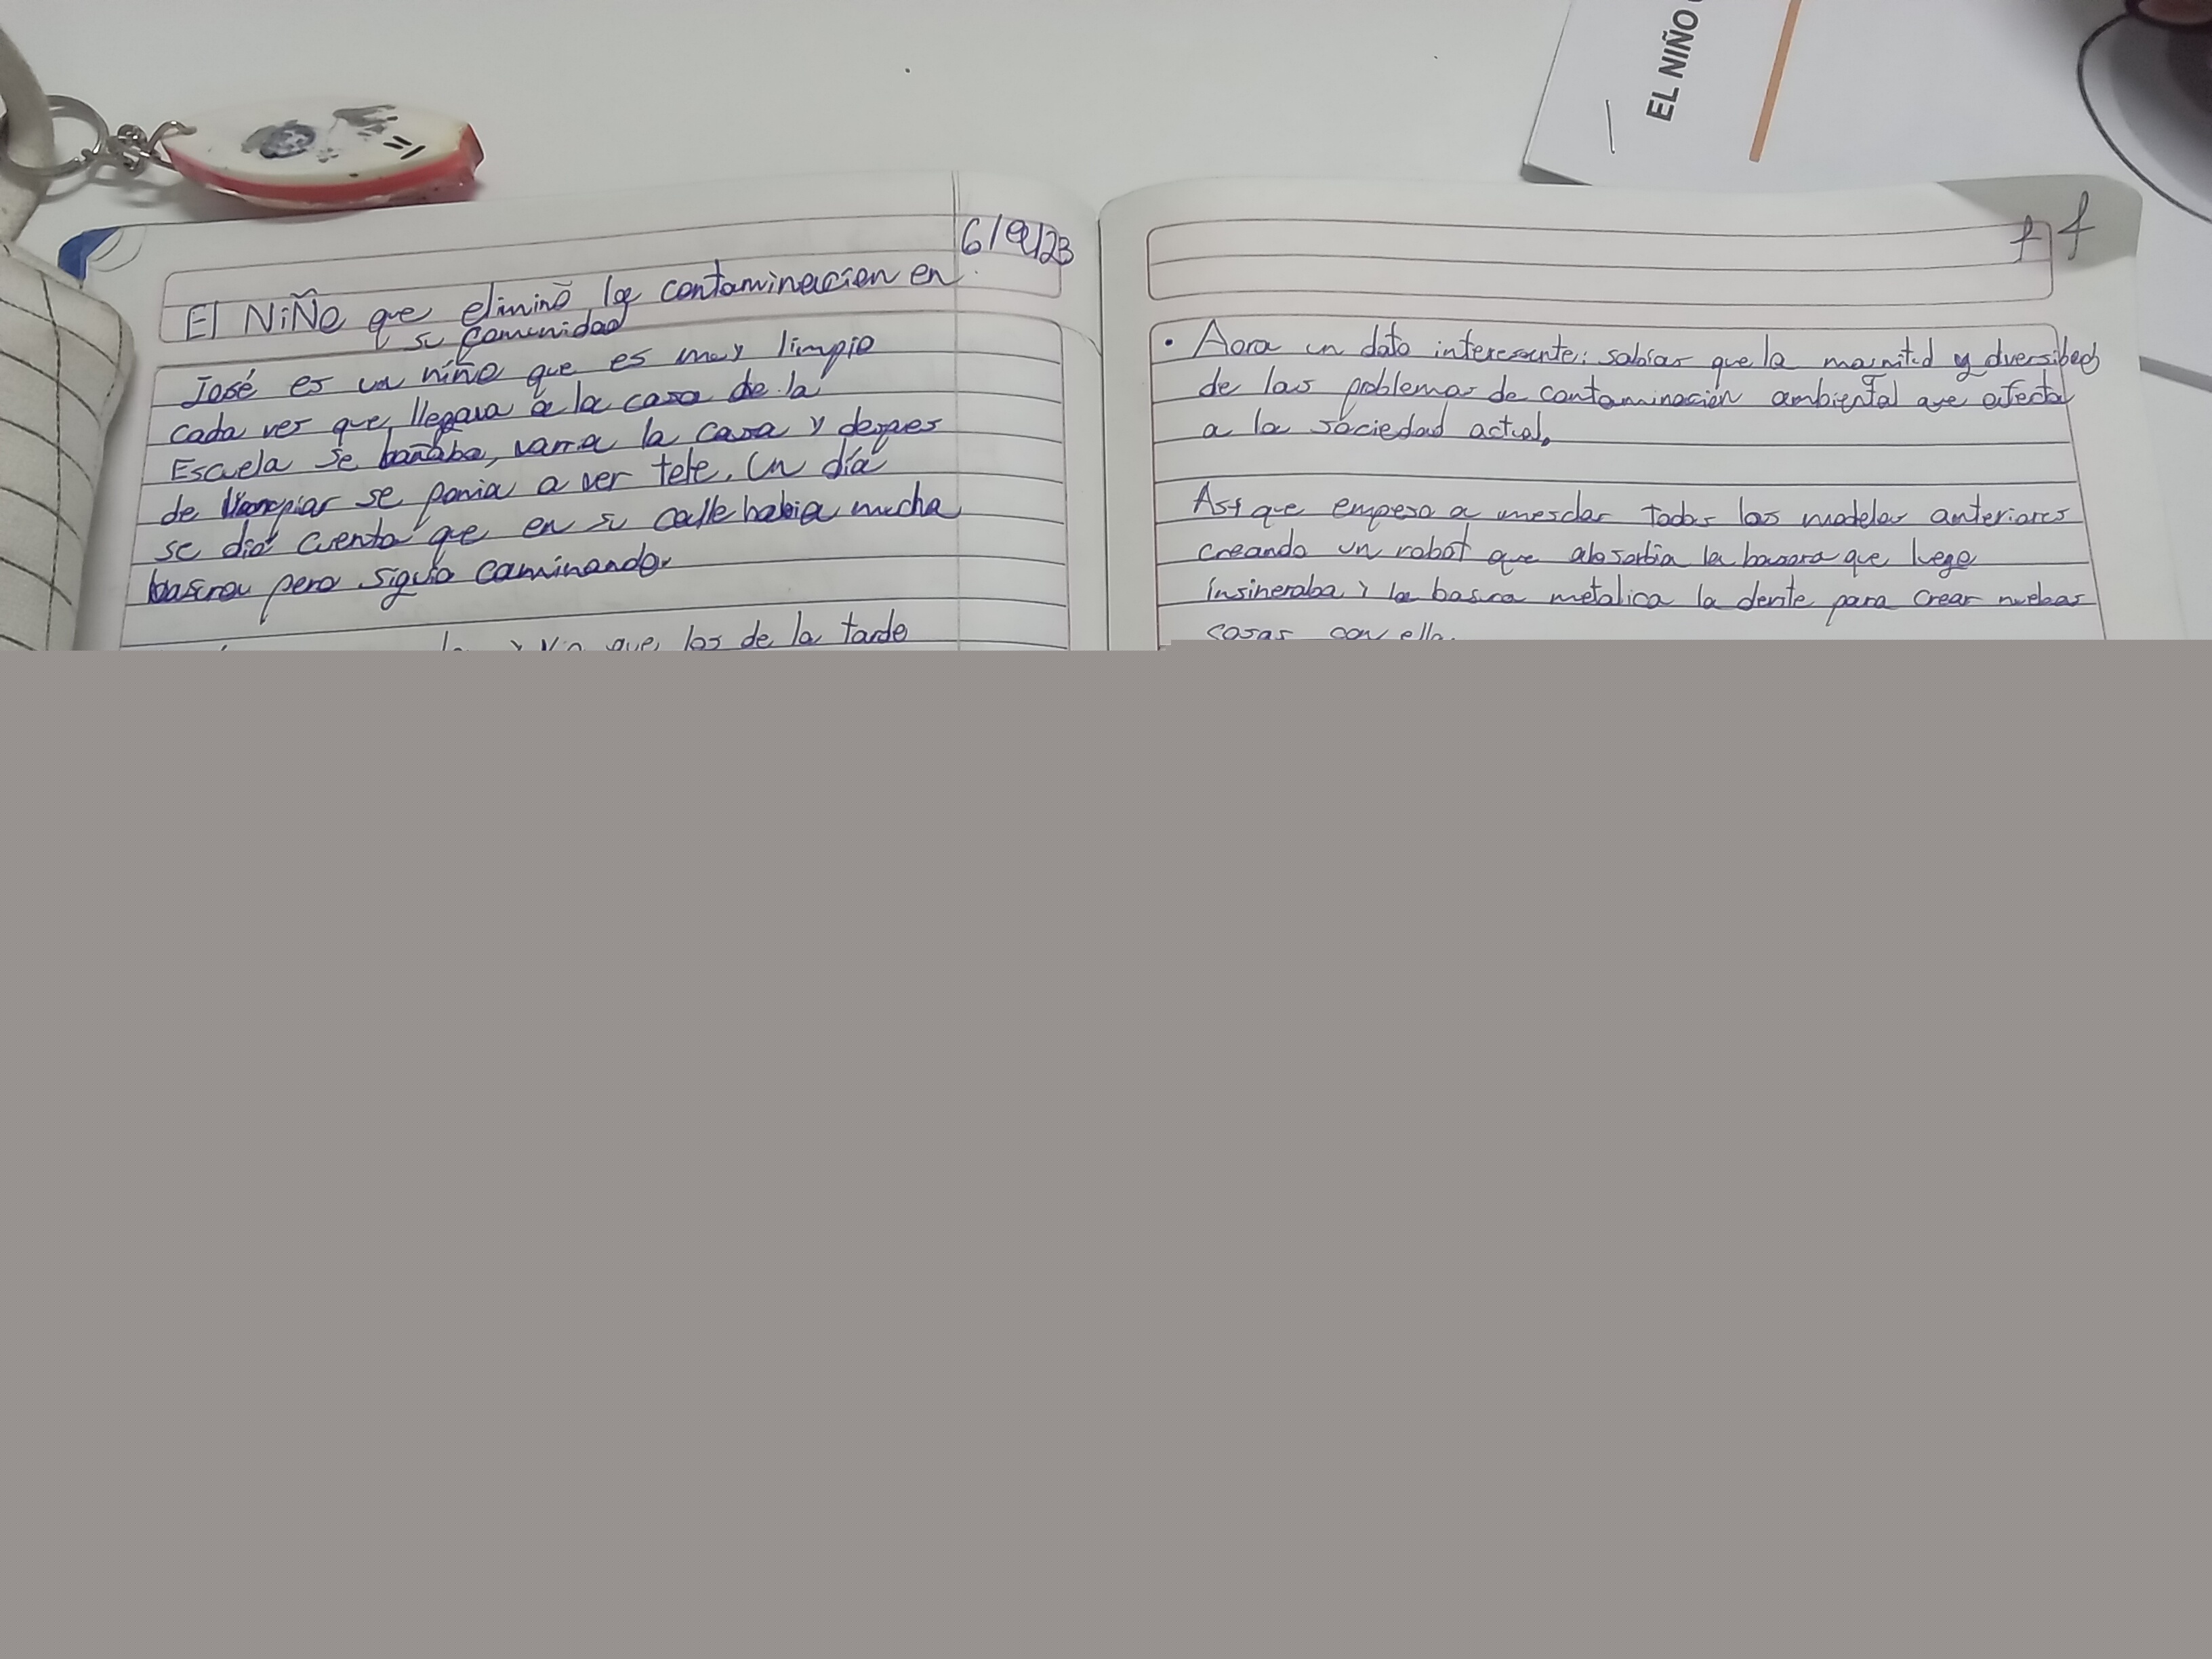 EL NIÑO
6/9/23
El NiÑo que eliminó la contaminacion en
su comunidad
José es un niño que es muy limpio
cada ves que llegava a la casa de la
Escuela se bañaba, varria la casa y despes
de limpiar se ponia a ver tele. Un día
se dió cuenta que en su calle habia mucha
basura pero siguio caminando.
que los de la tarde
• Aora un dato interesante: sabías que la y
de los problemas de contaminación ambiental que afecta
a la sociedad actual.
Así que empeso a mesclar todos los modelos anteriores
creando un robot que absorbia la basora que luego
insineraba y la basura metalica la para crear nuebas
cosas con ella.